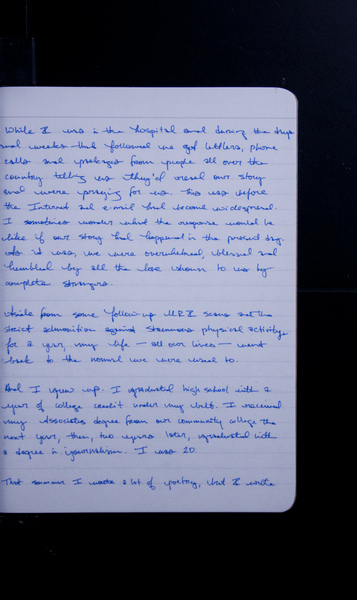 While I was in the hospital and during the days
and weeks that followed we got letters, phone
calls and packages from people all over the
country telling us they'd read our story
and were praying for us. This was before
the Internet and e-mail had become widespread.
I sometimes wonder what the response would be
like if our story had happened in the present day.
As it was, we were overwhelmed, blessed and
humbled by all the love shown to us by
complete strangers.
Aside from some follow-up MRI scans and the
strict admonition against strenuous physical activity
for a year, my life — all our lives — went
back to the normal we were used to.
And I grew up. I graduated high school with a
year of college credit under my belt. I received
my Associates degree from our community college the
next year, then, two years later, graduated with
a degree in journalism. I was 20.
That summer I wrote a lot of poetry, but I wrote